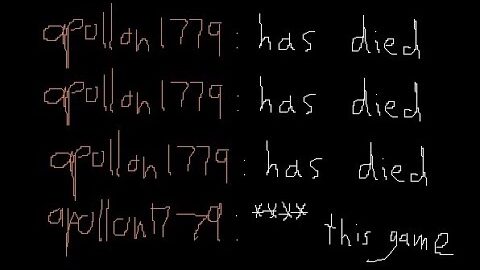 apollon1779: has died
apollon1779: has died
apollon1779: has died
apollon1779: **** this game